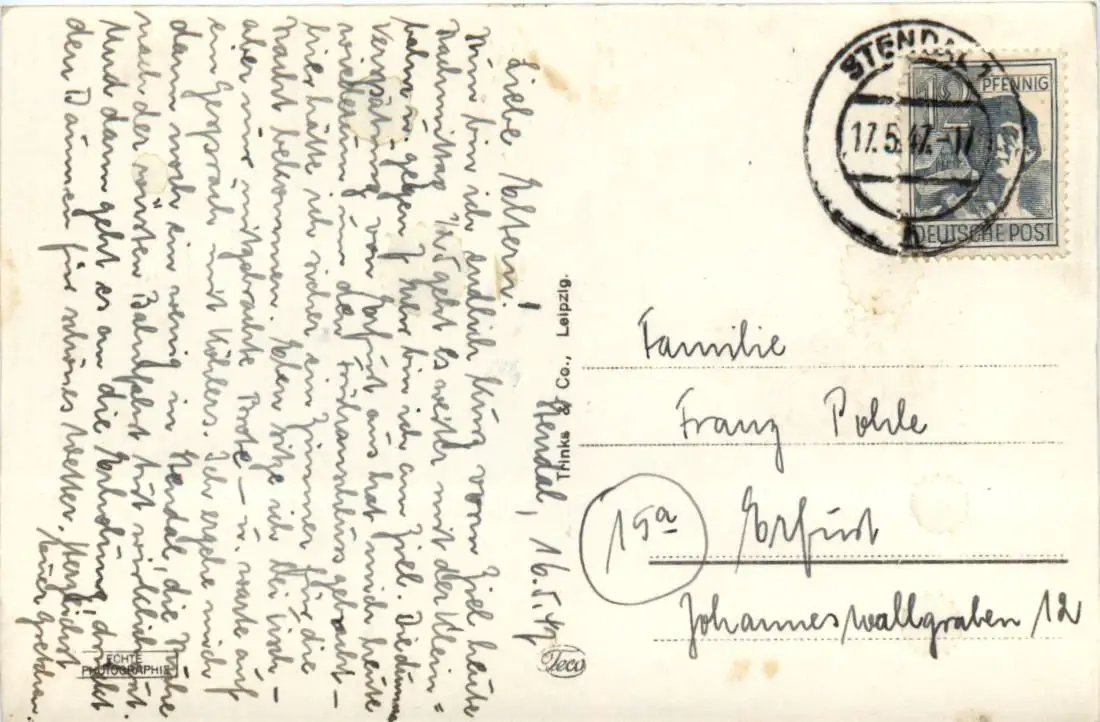 Stendal, 16.5.47
Liebe Eltern!
Nun bin ich endlich kurz vorm Ziel heute
Nachmittag 1/2 5 geht es weiter mit der Klein=
bahn u. gegen 7 Uhr bin ich am Ziel. Die dumme
Verspätung von Erfurt aus hat mich heute
wiederum um den Frühanschluss gebracht –
hier hätte ich sicher ein Zimmer für die
Nacht bekommen. Eben sitze ich bei
aber nur mitgebrachte Brote – u. warte auf
ein Gespräch mit Köhlers. Ich ergehe mich
dann noch ein wenig in Stendal, die Ruhe
nach der wüsten Bahnfahrt tut wirklich gut.
Und dann geht es an die Erholung, drückt
den Daumen für schönes Wetter. Herzlichst
Gretchen.
ECHTE
PHOTOGRAPHIE
Trinks & Co., Leipzig.
Teco
STENDAL 1
17.5.47.-17
12 PFENNIG
DEUTSCHE POST
Familie
Franz Pohle
15a Erfurt
Johanneswallgraben 12